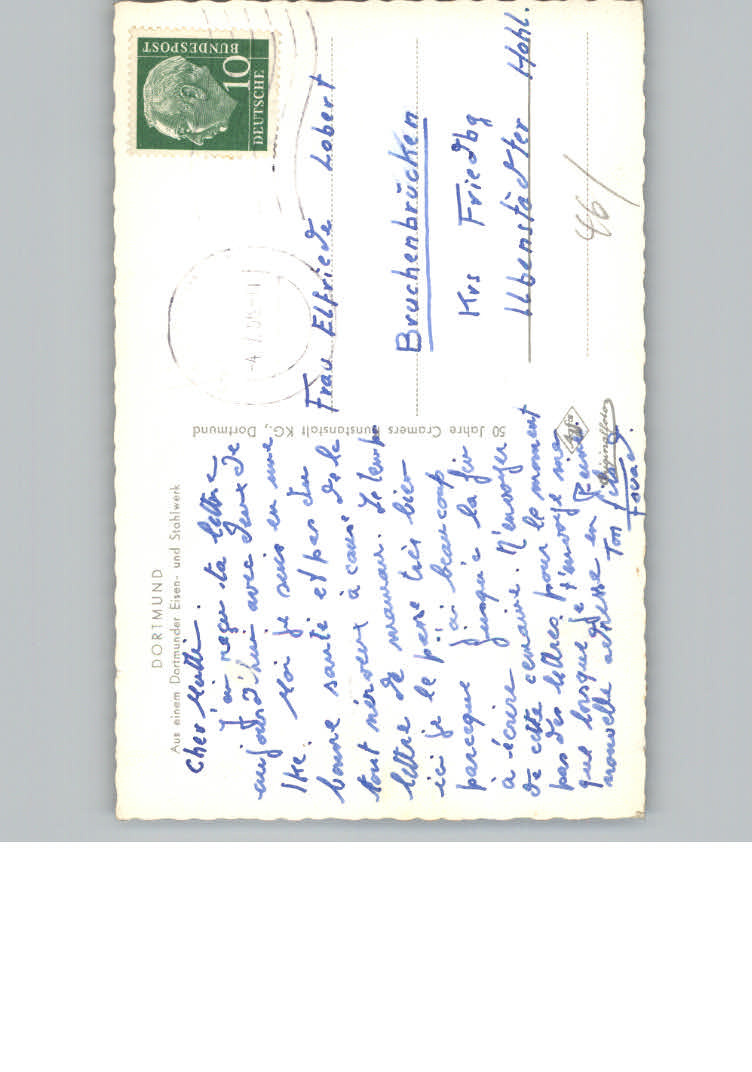 DORTMUND
Aus einem Dortmunder Eisen- und Stahlwerk
Cher Mutti.
J'ai reçu ta lettre
aujourd'hui avec deux de
Ilse. Moi je suis en une
bonne santé et pas du
tout nerveux à cause de la
lettre de maman. Le temps
ici je le passe très bien
parceque j'ai beaucoup
à écrire jusqu'à la fin
de cette cemaine. N'envoyer
pas des lettres pour le moment
que lorsque je t'envoye ma
nouvelle adresse en
Ton
50 Jahre Cramers Kunstanstalt KG., Dortmund
Originalfoto
DEUTSCHE
BUNDESPOST
10
Frau Elfriede Lobert
Bruchenbrücken
Krs Friedbg
Ilbenstädter Hohl.
46/